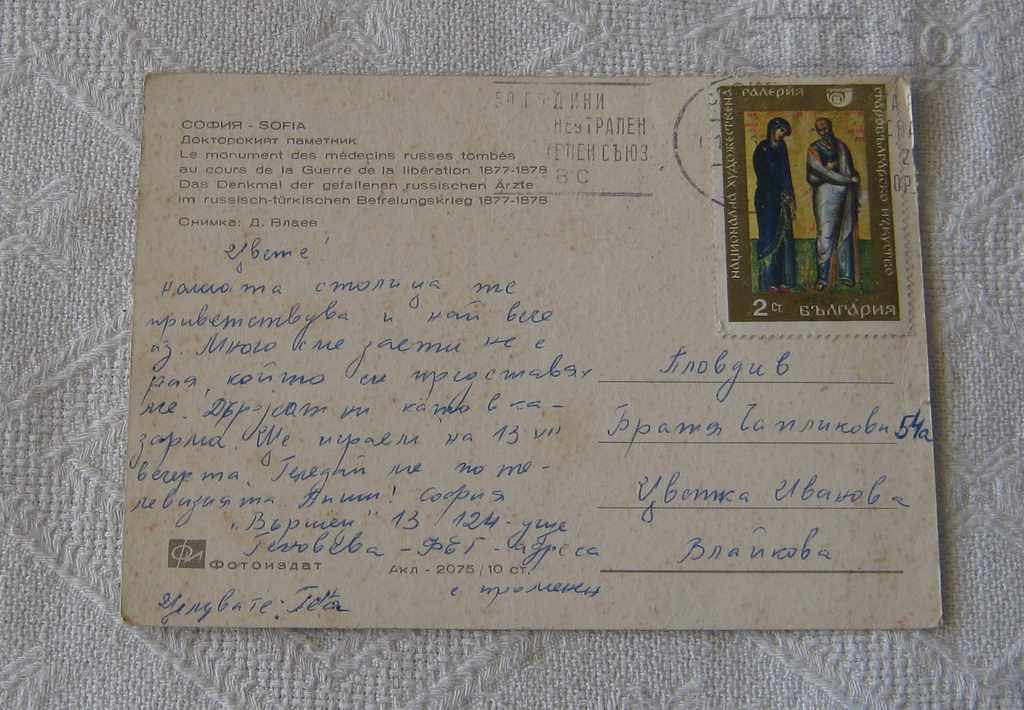 СОФИЯ - SOFIA
Докторският паметник
Le monument des médecins russes tombés
au cours de la Guerre de la libération 1877-1878
Das Denkmal der gefallenen russischen Ärzte
im russisch-türkischen Befreiungskrieg 1877-1878
Снимка: Д. Влаев
50 ГОДИНИ
НЕУТРАЛЕН
СЪЮЗ
НАЦИОНАЛНА ХУДОЖЕСТВЕНА ГАЛЕРИЯ
СТАРОБЪЛГАРСКО ИЗКУСТВО
2 СТ. БЪЛГАРИЯ
Цвете!
нашата столица те
приветствува и най вече
аз. Много сме заети не е
рая, който си представях-
ме. Държат ни като в ка-
зарма. Ще играем на 13 VII
вечерта. Гледай ме по те-
левизията. Пиши! София
"Вършец" 13 124
Геновева - ФБГ - адреса
е променен
Целувате:
Пловдив
Братя Чапликови 54а
Цветка Иванова
Влайкова
Фотоиздат
Акл - 2075/10 ст.